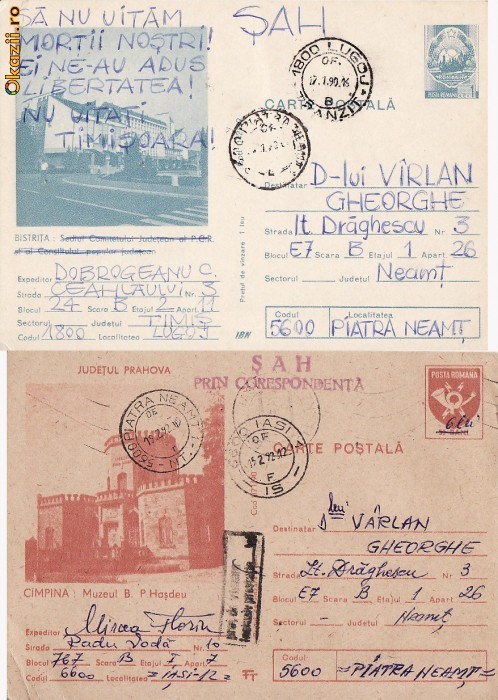 Okazii.ro
SĂ NU UITĂM
MORȚII NOȘTRI!
EI NE-AU ADUS
LIBERTATEA!
NU UITAȚI
TIMIȘOARA!
ȘAH
1800 LUGOJ
OF.
17.1.90.16
B
TRANZIT
CARTE POȘTALĂ
POȘTA ROMÂNĂ 1 L
5600 PIATRA NEAMȚ
OF.
BISTRIȚA : Sediul Comitetului Județean al P.C.R.
și al Consiliului popular județean
Prețul de vînzare 1 leu
Destinatar D-lui VÎRLAN
GHEORGHE
Strada lt. Drăghescu Nr. 3
Blocul E7 Scara B Etajul 1 Apart. 26
Sectorul Județul Neamț
Codul Localitatea
5600 PIATRA NEAMȚ
Expeditor DOBROGEANU C.
Strada CEAHLĂULUI Nr. 3
Blocul 24 Scara B Etajul 2 Apart. 11
Sectorul Județul TIMIȘ
Codul 1800 Localitatea LUGOJ
IBN
JUDEȚUL PRAHOVA
ȘAH
PRIN CORESPONDENȚĂ
POSTA ROMANA
6 lei
50 BANI
5600 PIATRA NEAMȚ 1
OF
-NT-
6600 IASI 1
OF
15.2.92.12
F
IS
CARTE POȘTALĂ
CÎMPINA : Muzeul B. P. Hașdeu
Destinatar D lui VÂRLAN
GHEORGHE
Strada Lt. Drăghescu Nr. 3
Blocul E7 Scara B Etajul 1 Apart. 26
Sectorul - Județul Neamț
Codul Localitatea
5600 =PIATRA NEAMȚ=
Expeditor Mircea Florin
Strada Radu Vodă Nr. 10
Blocul 767 Scara B Etajul I Apart. 7
Sectorul Județul
Codul 6600 Localitatea =IAȘI-12=